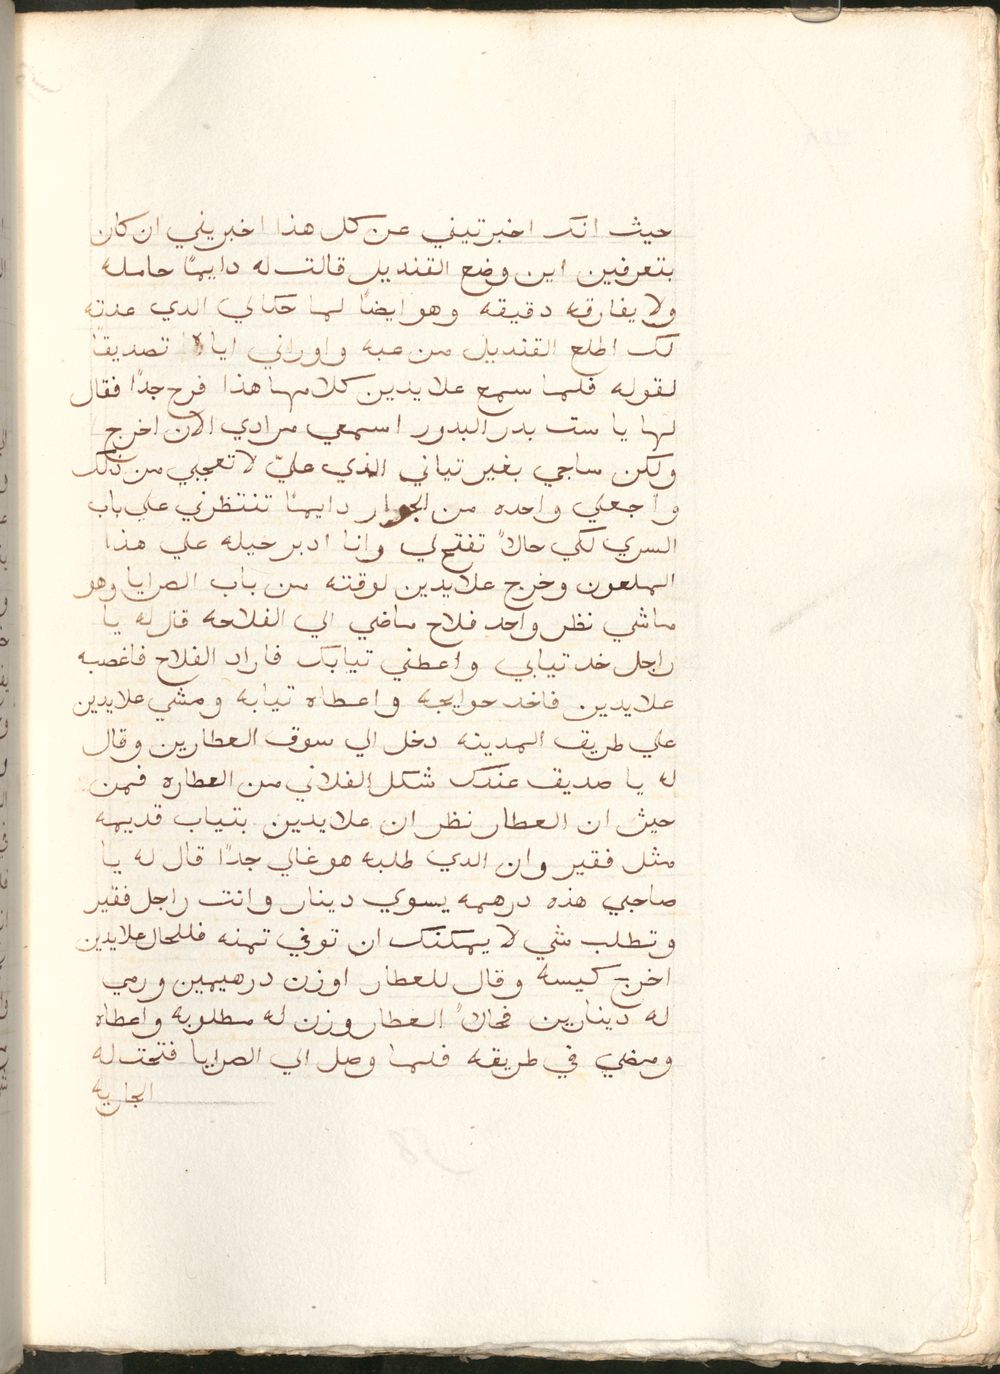 حيث انك اخبرتيني عن كل هذا اخبريني ان كان
بتعرفين اين وضع القنديل قالت له دايمًا حامله
ولا يفارقه دقيقه وهو ايضًا لما حكالي الدي عدته
لك اطلع القنديل من عبه واوراني اياه تصديقًا
لقوله فلما سمع علايدين كلامها هذا فرح جدًا فقال
لها يا ست بدر البدور اسمعي مرادي الان اخرج
ولكن ساجي بغير تيابي الذي عليّ لا تعجبي من ذلك
واجعلي واحده من الجوار دايمًا تنتظرني علي باب
السري لكي حالاً تفتح لي وانا ادبر حيله علي هذا
الملعون وخرج علايدين لوقته من باب الصرايا وهو
ماشي نظر واحد فلاح ماضي الي الفلاحه قال له يا
راجل خد تيابي واعطني تيابك فاراد الفلاح فاغصبه
علايدين فاخد حوايجه واعطاه تيابه ومشي علايدين
علي طريق المدينه دخل الي سوق العطارين وقال
له يا صديق عندك شكل الفلاني من العطاره فمن
حيث ان العطار نظر ان علايدين بتياب قديمه
مثل فقير وان الدي طلبه هو غالي جدًا قال له يا
صاحبي هذه درهمه يسوي دينار وانت راجل فقير
وتطلب شي لا يمكنك ان توفي تمنه فللحال علايدين
اخرج كيسه وقال للعطار اوزن درهيمين ورمي
له دينارين فحالاً العطار وزن له مطلوبه واعطاه
ومضي في طريقه فلما وصل الي الصرايا فتحت له
الجاريه